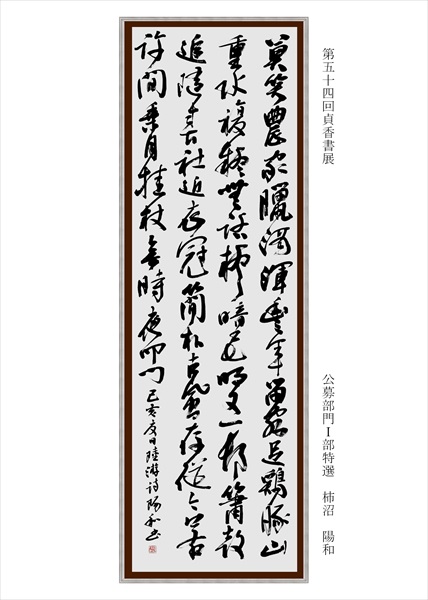 第五十四回貞香書展
公募部門Ⅰ部特選 柿沼 陽和
莫笑農家臘酒渾豊年留客足鷄豚山
重水複疑無路柳暗花明又一邨簫鼓
追随春社近衣冠簡朴古風存従今若
許閒乗月拄杖無時夜叩門 己亥夏日陸游詩陽和書